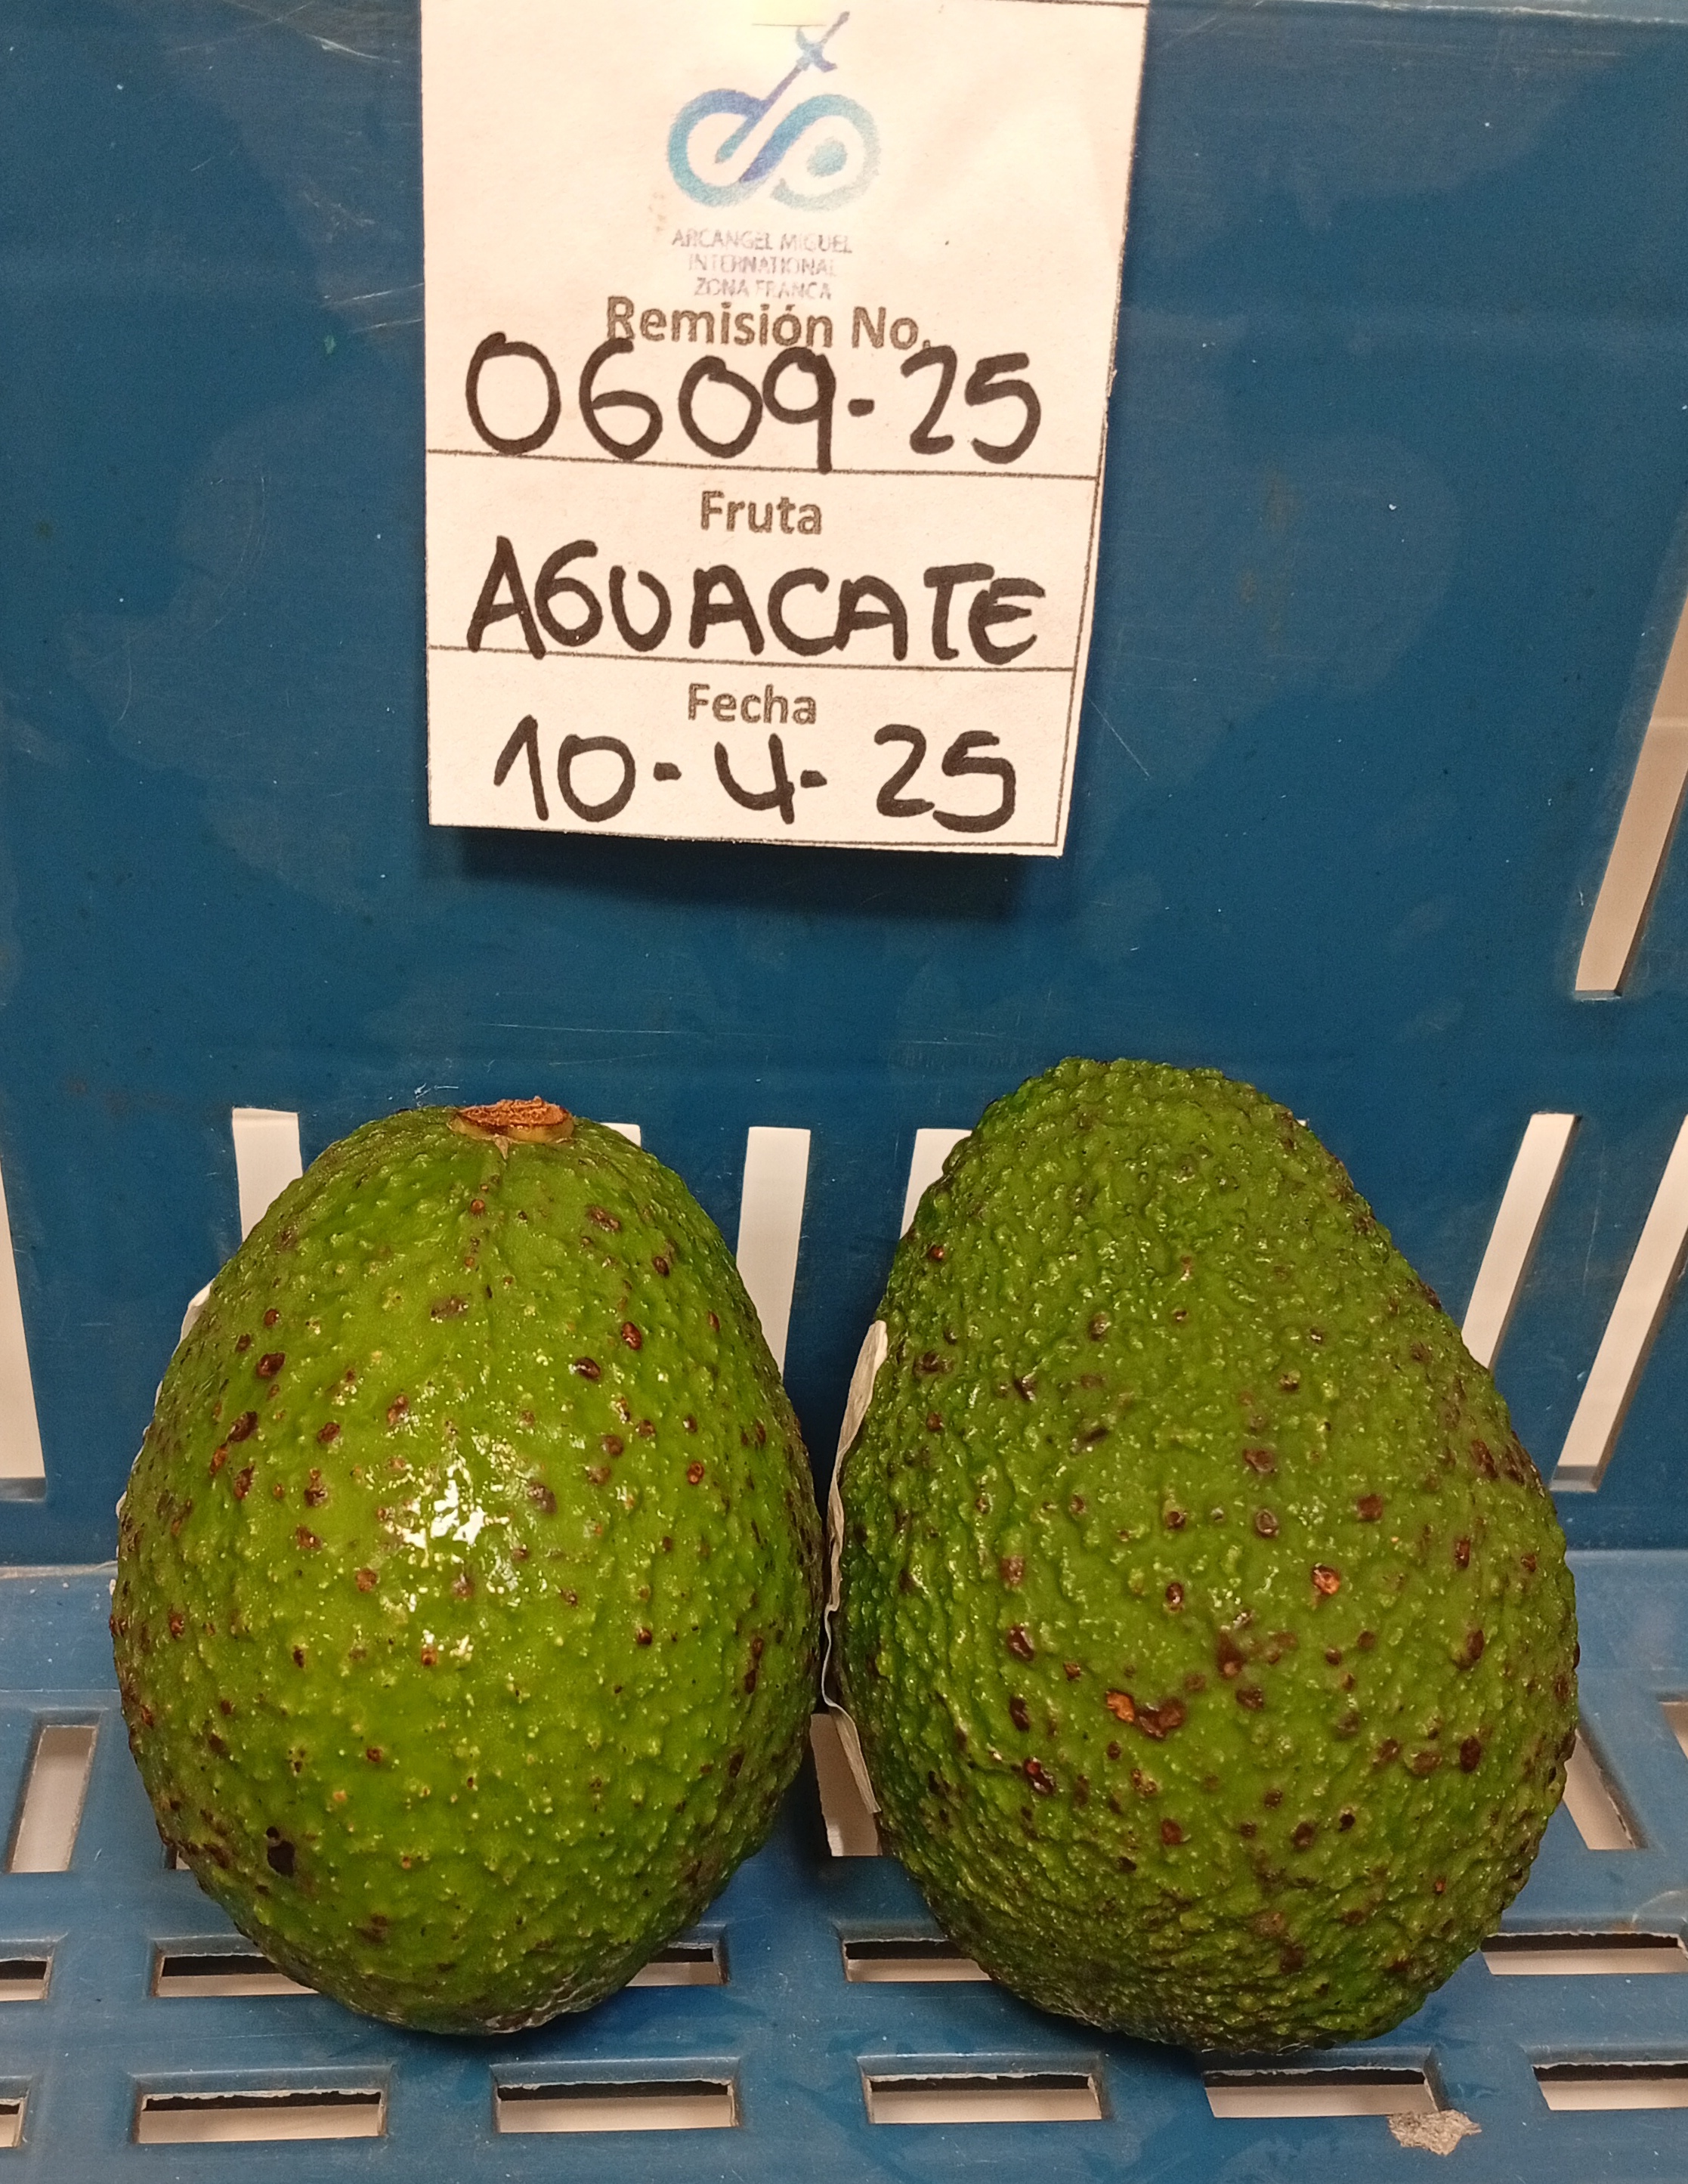 ARCANGEL MIGUEL
INTERNATIONAL
ZONA FRANCA
Remisión No.
0609-25
Fruta
AGUACATE
Fecha
10-4-25